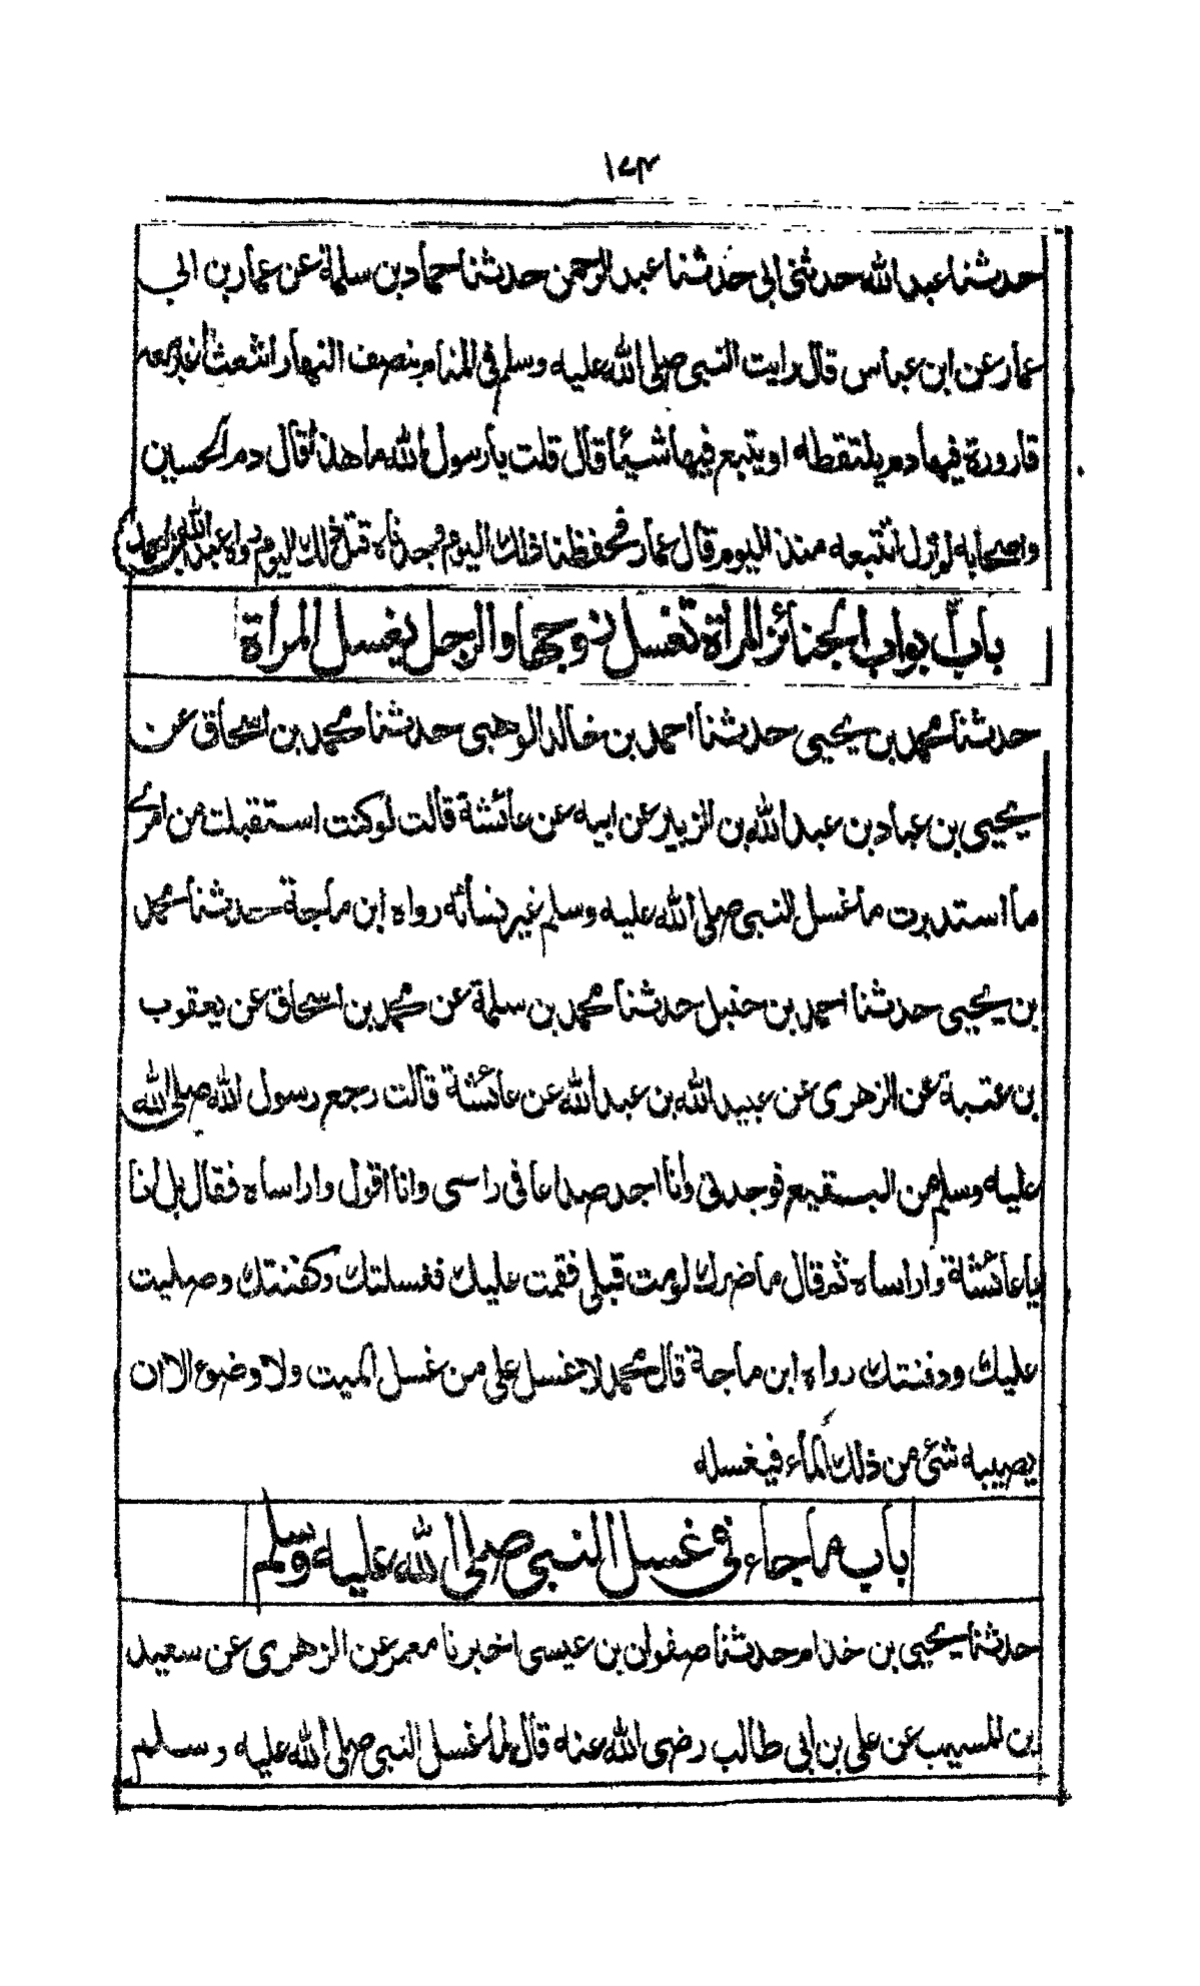 ١٧٣
حدثنا عبد الله حدثنى ابي حدثنا عبد الرحمن حدثنا حماد بن سلمة عن عمار بن ابي
عمار عن ابن عباس قال رايت النبي صلى الله عليه وسلم فى المنام بنصف النهار اشعث اغبر معه
قارورة فيها دم يلتقطه او يتبع فيها شيئا قال قلت يا رسول الله ما هذا قال دم الحسين
واصحابه لم ازل اتتبعه منذ اليوم قال عمار فحفظنا ذلك اليوم فوجدناه قتل ذلك اليوم رواه عبد الله بن احمد
باب ابواب الجنائز المرأة تغسل زوجها والرجل يغسل المرأة
حدثنا محمد بن يحيى حدثنا احمد بن خالد الوهبي حدثنا محمد بن اسحاق عن
يحيى بن عباد بن عبد الله بن الزبير عن ابيه عن عائشة قالت لو كنت استقبلت من امرى
ما استدبرت ما غسل النبي صلى الله عليه وسلم غير نسائه رواه ابن ماجة حدثنا محمد
بن يحيى حدثنا احمد بن حنبل حدثنا محمد بن سلمة عن محمد بن اسحاق عن يعقوب
بن عتبة عن الزهرى عن عبيد الله بن عبد الله عن عائشة قالت رجع رسول الله صلى الله
عليه وسلم من البقيع فوجدنى وأنا اجد صداعا فى راسى وانا اقول واراساه فقال بل انا
يا عائشة واراساه ثم قال ما ضرك لو مت قبلى فقمت عليك فغسلتك وكفنتك وصليت
عليك ودفنتك رواه ابن ماجة قال محمد لا غسل على من غسل الميت ولا وضوء الا ان
يصيبه شئ من ذلك الماء فيغسله
باب ما جاء فى غسل النبي صلى الله عليه وسلم
حدثنا يحيى بن خذام حدثنا صفوان بن عيسى اخبرنا معمر عن الزهرى عن سعيد
بن المسيب عن على بن ابى طالب رضى الله عنه قال لما غسل النبي صلى الله عليه وسلم